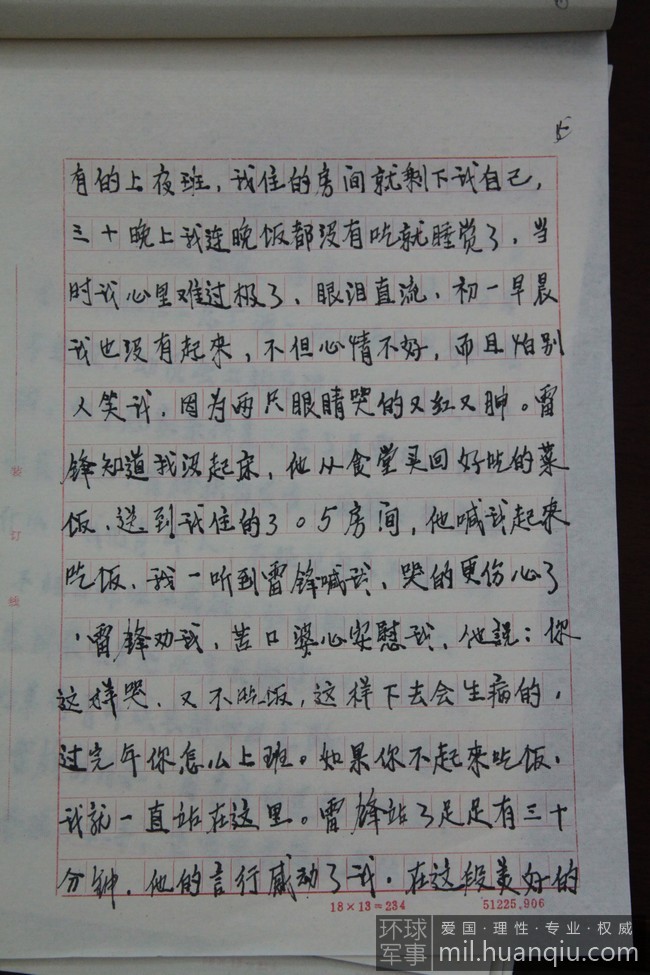 15
有的上夜班，我住的房间就剩下我自己，
三十晚上我连晚饭都没有吃就睡觉了，当
时我心里难过极了，眼泪直流，初一早晨
我也没有起来，不但心情不好，而且怕别
人笑我，因为两只眼睛哭的又红又肿。雷
锋知道我没起床，他从食堂买回好吃的菜
饭，送到我住的305房间，他喊我起来
吃饭，我一听到雷锋喊我，哭的更伤心了
，雷锋劝我，苦口婆心安慰我，他說：你
这样哭，又不吃饭，这样下去会生病的，
过完年你怎么上班。如果你不起来吃饭，
我就一直站在这里。雷锋站了足足有三十
分钟，他的言行感动了我，在这段美好的
装
订
线
18×13=234 51225.906
环球军事
爱国·理性·专业·权威
mil.huanqiu.com